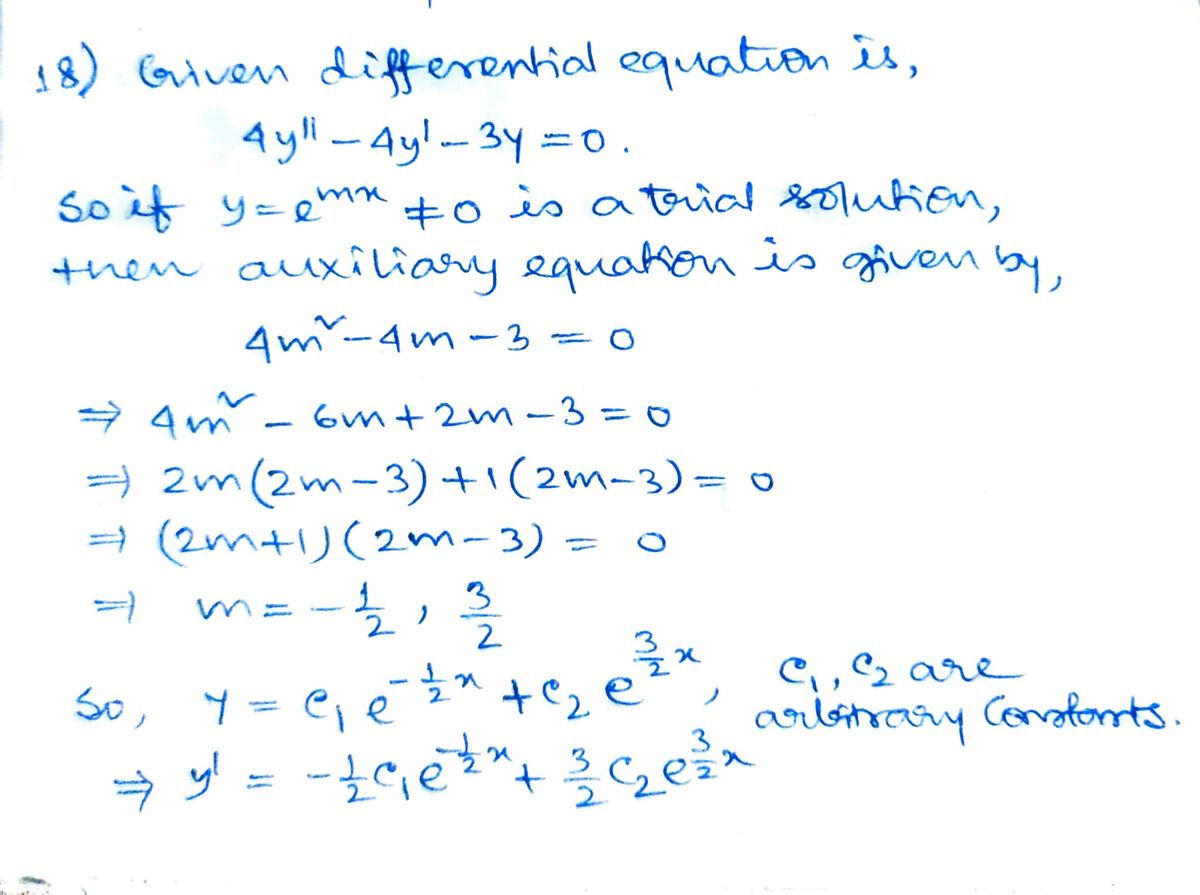 18) Given differential equation is,
4y'' - 4y' - 3y = 0.
So if y = e^{mx} ≠ 0 is a trial solution,
then auxiliary equation is given by,
4m² - 4m - 3 = 0
⇒ 4m² - 6m + 2m - 3 = 0
⇒ 2m(2m-3) + 1(2m-3) = 0
⇒ (2m+1)(2m-3) = 0
⇒ m = -1/2, 3/2
So, y = c₁ e^{-1/2 x} + c₂ e^{3/2 x}, c₁, c₂ are arbitrary constants.
⇒ y' = -1/2 c₁ e^{-1/2 x} + 3/2 c₂ e^{3/2 x}